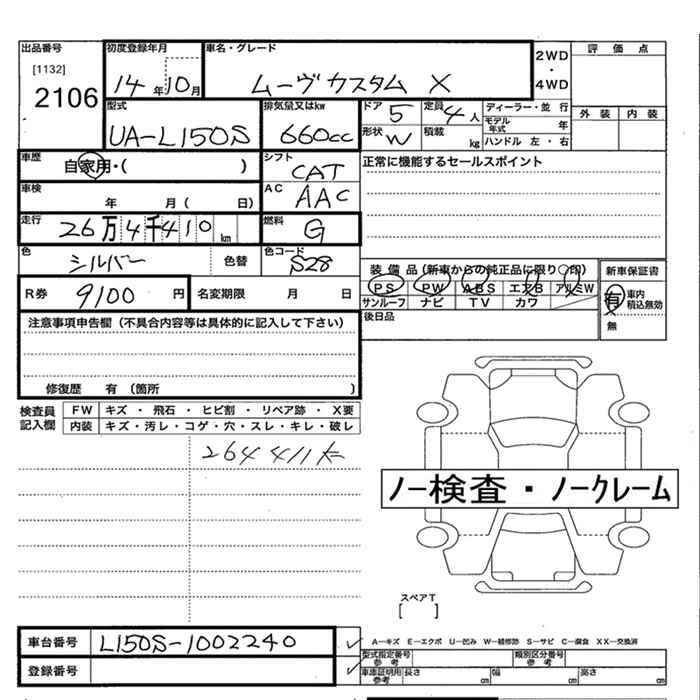 出品番号 [1132] 2106
初度登録年月 14年10月
車名・グレード ムーヴカスタム X
2WD・4WD
評価点
外装 内装
型式 UA-L150S
排気量又はkw 660cc
ドア 5 定員 4人
形状 W 積載 kg
ディーラー・並行
モデル年式 年
ハンドル 左・右
車歴 自家用・( )
シフト CAT
正常に機能するセールスポイント
車検 年 月( 日)
AC AAC
走行 26万4千410km
燃料 G
色 シルバー 色替
色コード S28
装備品(新車からの純正品に限り○印)
PS PW ABS エアB アルミW
サンルーフ ナビ TV カワ
新車保証書
有 車内積込無効
無
R券 9100円
名変期限 月 日
後日品
注意事項申告欄(不具合内容等は具体的に記入して下さい)
修復歴 有(箇所 )
検査員記入欄
FW キズ・飛石・ヒビ割・リペア跡・X要
内装 キズ・汚レ・コゲ・穴・スレ・キレ・破レ
264411k
ノー検査・ノークレーム
スペアT
[ ]
車台番号 L150S-1002240
登録番号
A―キズ E―エクボ U―凹み W―補修跡 S―サビ C―腐食 XX―交換済
型式指定番号 参考
類別区分番号 参考
車庫証明用 参考 長さ cm 幅 cm 高さ cm